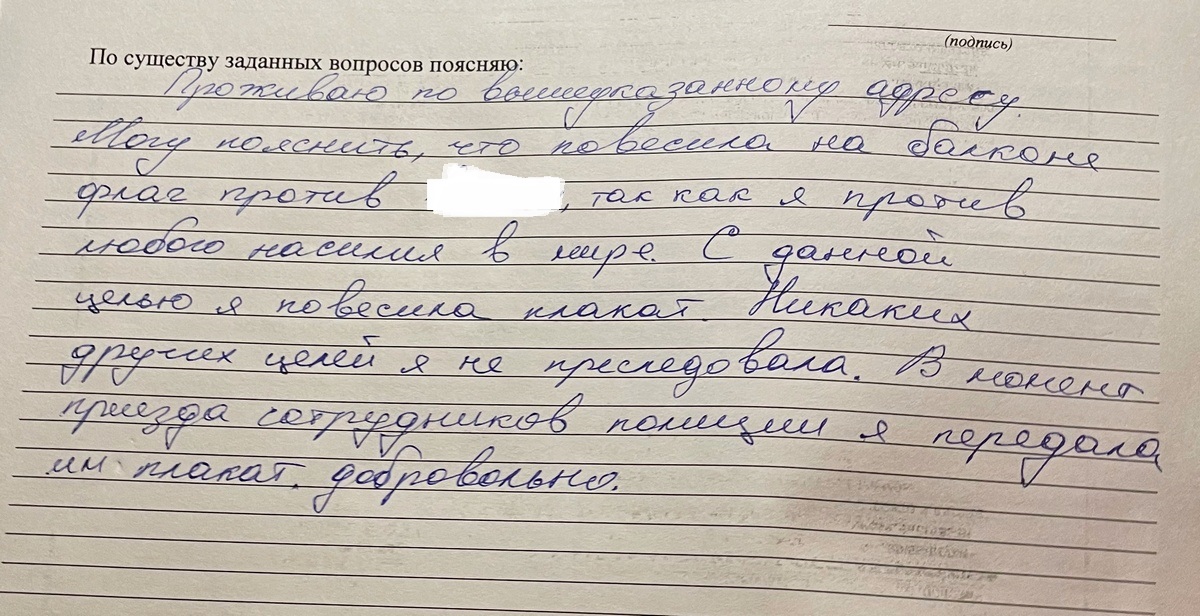 (подпись)
По существу заданных вопросов поясняю:
Проживаю по вышеуказанному адресу.
Могу пояснить, что повесила на балконе
флаг против , так как я против
любого насилия в мире. С данной
целью я повесила плакат. Никаких
других целей я не преследовала. В момент
приезда сотрудников полиции я передала
им плакат. добровольно.